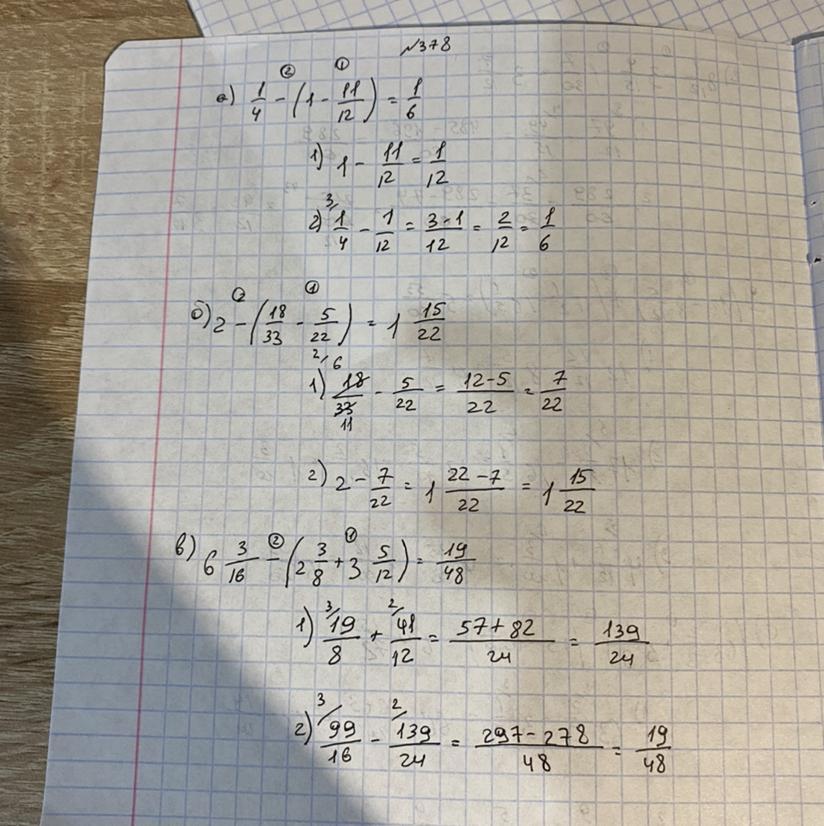 №378
а) 1/4 - (1 - 11/12) = 1/6
② ①
1) 1 - 11/12 = 1/12
2) 3/ 1/4 - 1/12 = 3-1/12 = 2/12 = 1/6
б) 2 - (18/33 - 5/22) = 1 15/22
② ①
1) 2/ 18/33 6 11 - 5/22 = 12-5/22 = 7/22
2) 2 - 7/22 = 1 22-7/22 = 1 15/22
в) 6 3/16 - (2 3/8 + 3 5/12) = 19/48
② ①
1) 3/ 19/8 + 2/ 41/12 = 57+82/24 = 139/24
2) 3/ 99/16 - 2/ 139/24 = 297-278/48 = 19/48